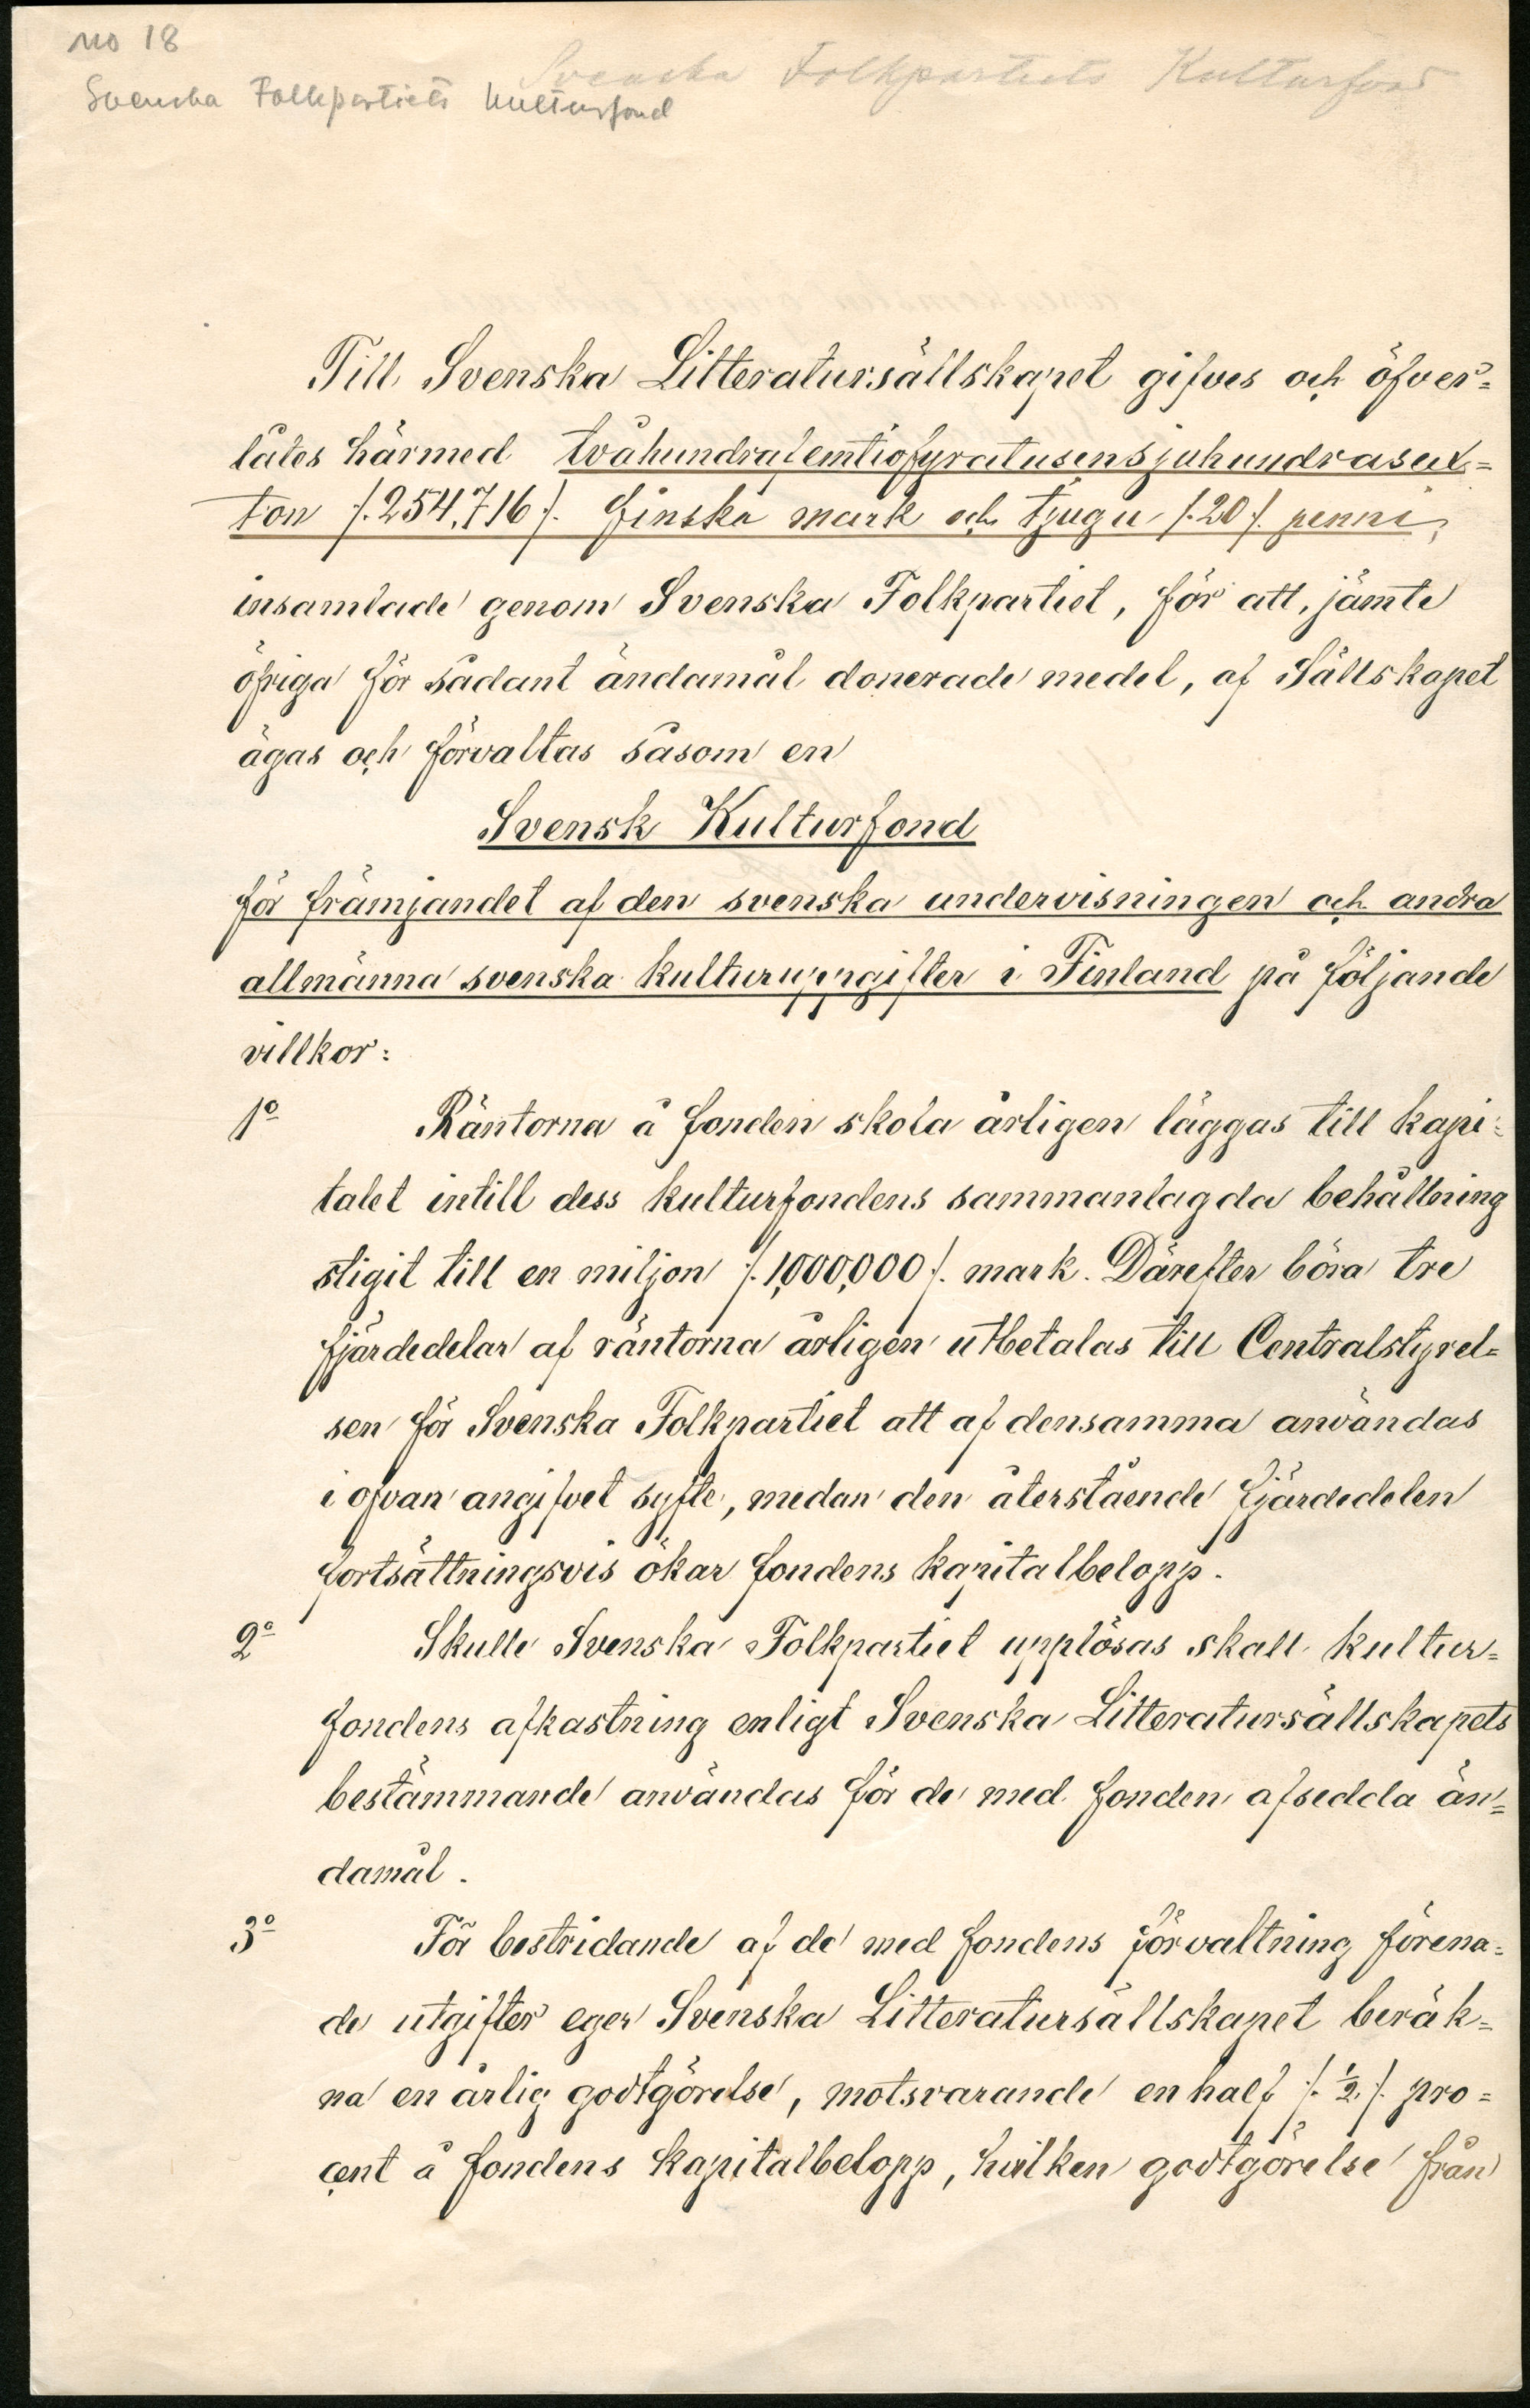 no 18
Svenska Folkpartiets Kulturfond
Svenska Folkpartiets Kulturfond
Till Svenska Litteratursällskapet gifves och öfver=
låtes härmed tvåhundrafemtiofyratusensjuhundrasex=
ton /.254,716/. finska mark och tjugu /.20/. penni,
insamlade genom Svenska Folkpartiet, för att, jämte
öfriga för sådant ändamål donerade medel, af Sällskapet
ägas och förvaltas såsom en
Svensk Kulturfond
för främjandet af den svenska undervisningen och andra
allmänna svenska kulturuppgifter i Finland på följande
villkor:
1º Räntorna å fonden skola årligen läggas till kapi=
talet intill dess kulturfondens sammanlagda behållning
stigit till en miljon /.1,000,000/. mark. Därefter böra tre
fjärdedelar af räntorna årligen utbetalas till Centralstyrel=
sen för Svenska Folkpartiet att af densamma användas
i ofvan angifvet syfte, medan den återstående fjärdedelen
fortsättningsvis ökar fondens kapitalbelopp.
2º Skulle Svenska Folkpartiet upplösas skall kultur=
fondens afkastning enligt Svenska Litteratursällskapets
bestämmande användas för de med fonden afsedda än=
damål.
3º För bestridande af de med fondens förvaltning förena=
de utgifter eger Svenska Litteratursällskapet beräk=
na en årlig godtgörelse, motsvarande en half /.½/. pro=
cent å fondens kapitalbelopp, hvilken godtgörelse från